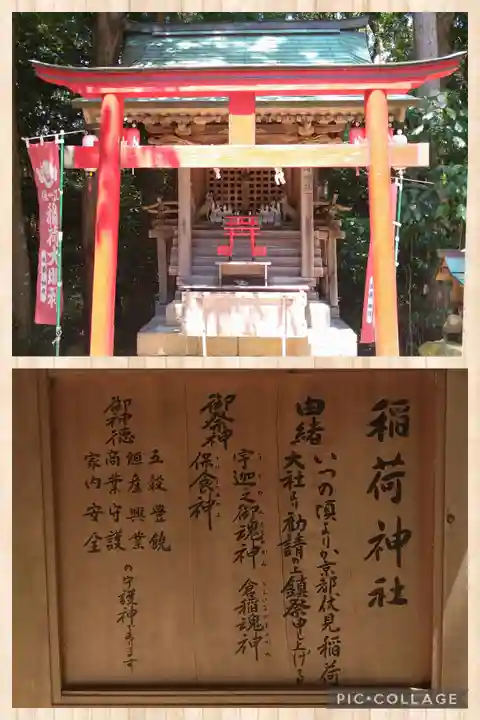 稲荷神社
由緒
いつの頃よりか京都伏見稲荷
大社より勧請の上鎮祭申し上げる
御祭神
宇迦之御魂神 倉稲魂神
保食神
御神徳
五穀豊饒
殖産興業
商業守護
家内安全
の守護神であります
PIC•COLLAGE